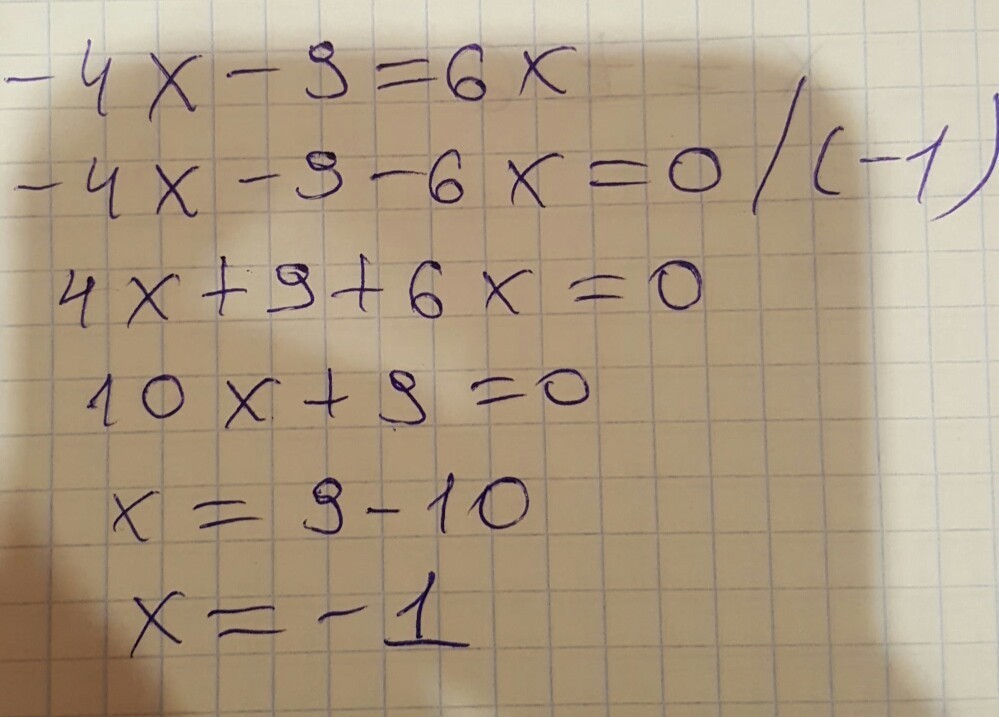 -4x-9=6x
-4x-9-6x=0/(-1)
4x+9+6x=0
10x+9=0
x=9-10
x=-1